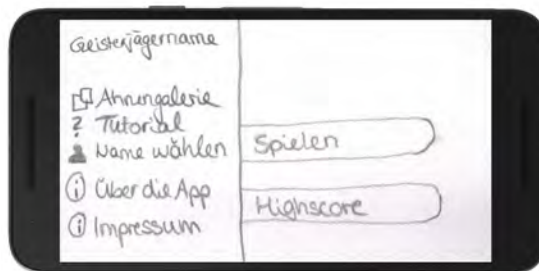 Geisterjägername
Ahnungalerie
? Tutorial
Name wählen
i Über die App
i Impressum
Spielen
Highscore